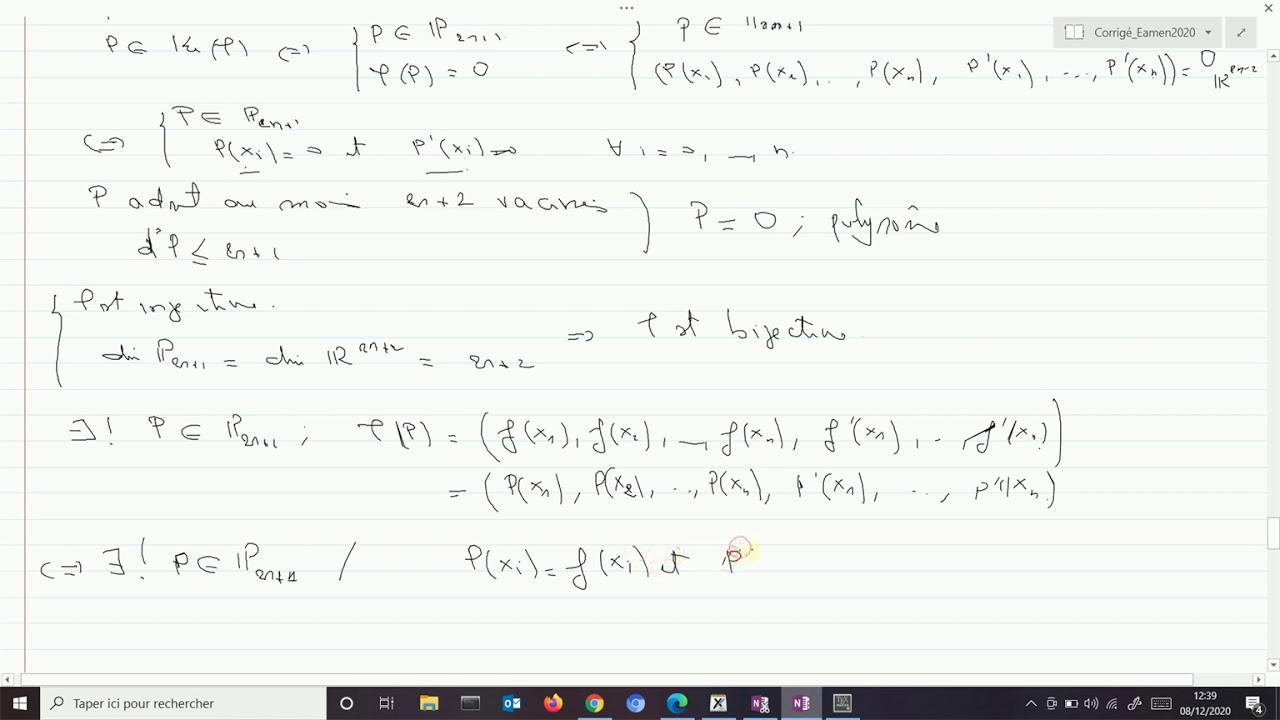 P ∈ Ker(φ) ⟺ { P ∈ ℙ2n+1, φ(P) = 0 ⟺ { P ∈ ℙ2n+1
(P(x1), P(x2), .., P(xn), P'(x1), ..., P'(xn)) = 0 ℝ2n+2
Corrigé_Eamen2020
⟺ { P ∈ ℙ2n+1
P(xi) = 0 et P'(xi) = 0 ∀ i = 0, ..., n.
P admet au moins 2n+2 racines
d°P ≤ 2n+1
P = 0 ; polynôme
φ est injective.
dim ℙ2n+1 = dim ℝ^2n+2 = 2n+2
⟹ φ est bijective.
∃! P ∈ ℙ2n+1 ; φ(P) = (f(x1), f(x2), ..., f(xn), f'(x1), .., f'(xn))
= (P(x1), P(x2), ..., P(xn), P'(x1), ..., P'(xn))
⟺ ∃! P ∈ ℙ2n+1 / P(xi) = f(xi) et P
Taper ici pour rechercher
12:39
08/12/2020
4